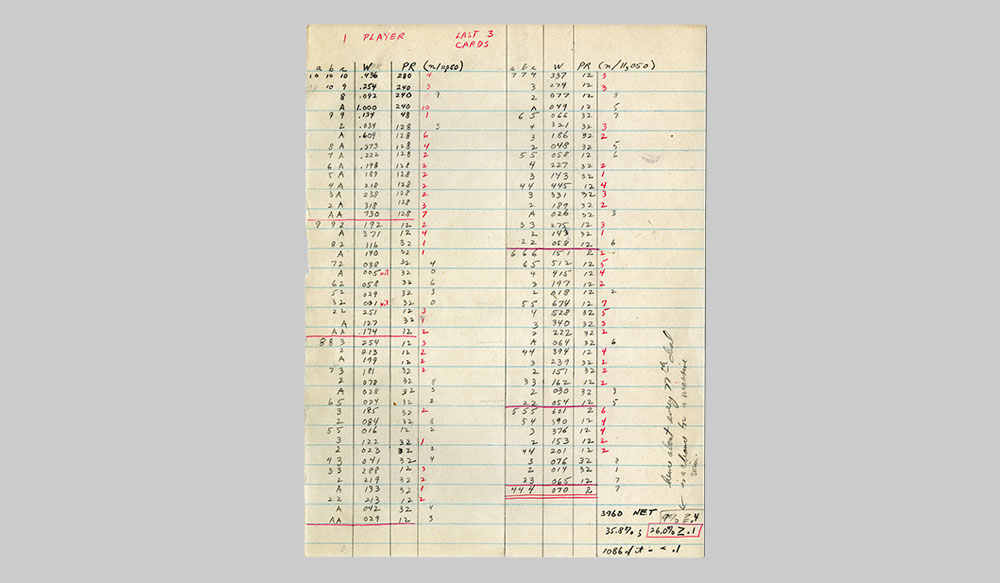 1 PLAYER LAST 3
CARDS
a b c W PR (n/11,050)
10 10 10 .436 280 4
10 9 .254 240 3
8 .092 240 9
A 1.000 240 10
9 9 .134 48 1
2 .034 128 3
A .609 128 6
8 A .373 128 4
7 A .222 128 2
6 A .198 128 2
5 A .189 128 2
4 A 218 128 2
3 A 238 128 2
2 A 318 128 3
A A 730 128 7
9 9 2 192 12 2
A 371 12 4
8 2 116 32 1
A 140 32 1
7 2 038 32 4
A 005 nil 32 0
6 2 058 32 6
5 2 029 32 3
3 2 001 nil 32 0
2 2 251 12 3
A 127 32 1
A A .174 12 2
8 8 3 254 12 3
2 213 12 2
A 199 12 2
7 3 181 32 2
2 078 32 8
A 028 32 3
6 5 024 32 2
3 185 32 2
2 084 32
5 5 016 12 2
3 122 32 1
2 023 32 2
4 3 041 32 4
3 3 288 12 3
2 219 32 2
A 133 32 1
2 2 213 12 2
A 042 32 4
A A 029 12 3
a b c W PR (n/11,050)
7 7 4 337 12 3
3 274 12 3
2 077 12 8
A 049 12 5
6 5 066 32 7
4 321 32 3
3 186 32 2
2 048 32 5
5 5 058 12 6
4 227 32 2
3 143 32 1
4 4 445 12 4
3 331 32 3
2 189 32 2
A 026 32 3
3 3 275 12 3
2 143 32 1
2 2 058 12 6
6 6 6 151 2 2
6 5 512 12 5
4 415 12 4
3 197 12 2
2 018 12 2
5 5 674 12 7
4 528 32 5
3 340 32 3
2 222 32 2
A 064 32 6
4 4 394 12 4
3 239 32 2
2 151 32 2
3 3 162 12 2
2 030 32 3
2 2 054 12 5
5 5 5 601 2 6
5 4 390 12 4
3 376 12 4
2 153 12 2
4 4 201 12 2
3 076 32 8
2 014 32 1
3 3 065 12 7
4 4 4 070 2 7
Hence about every 11th deal
is a chance for a
3960 NET 9% ≥ .4
35.8% 26.0% ≥ .1
1086